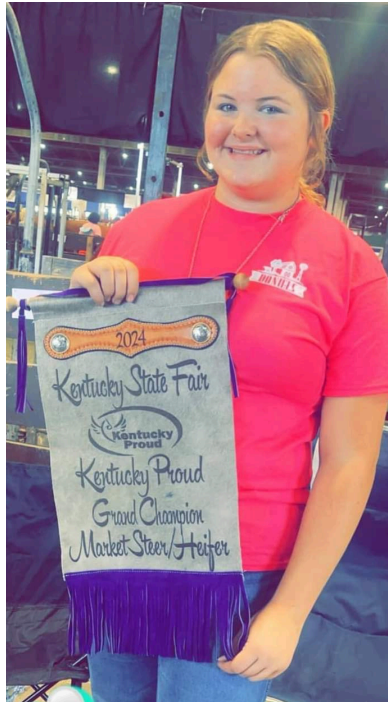 2024
Kentucky State Fair
Kentucky
Proud
Kentucky Proud
Grand Champion
Market Steer/Heifer